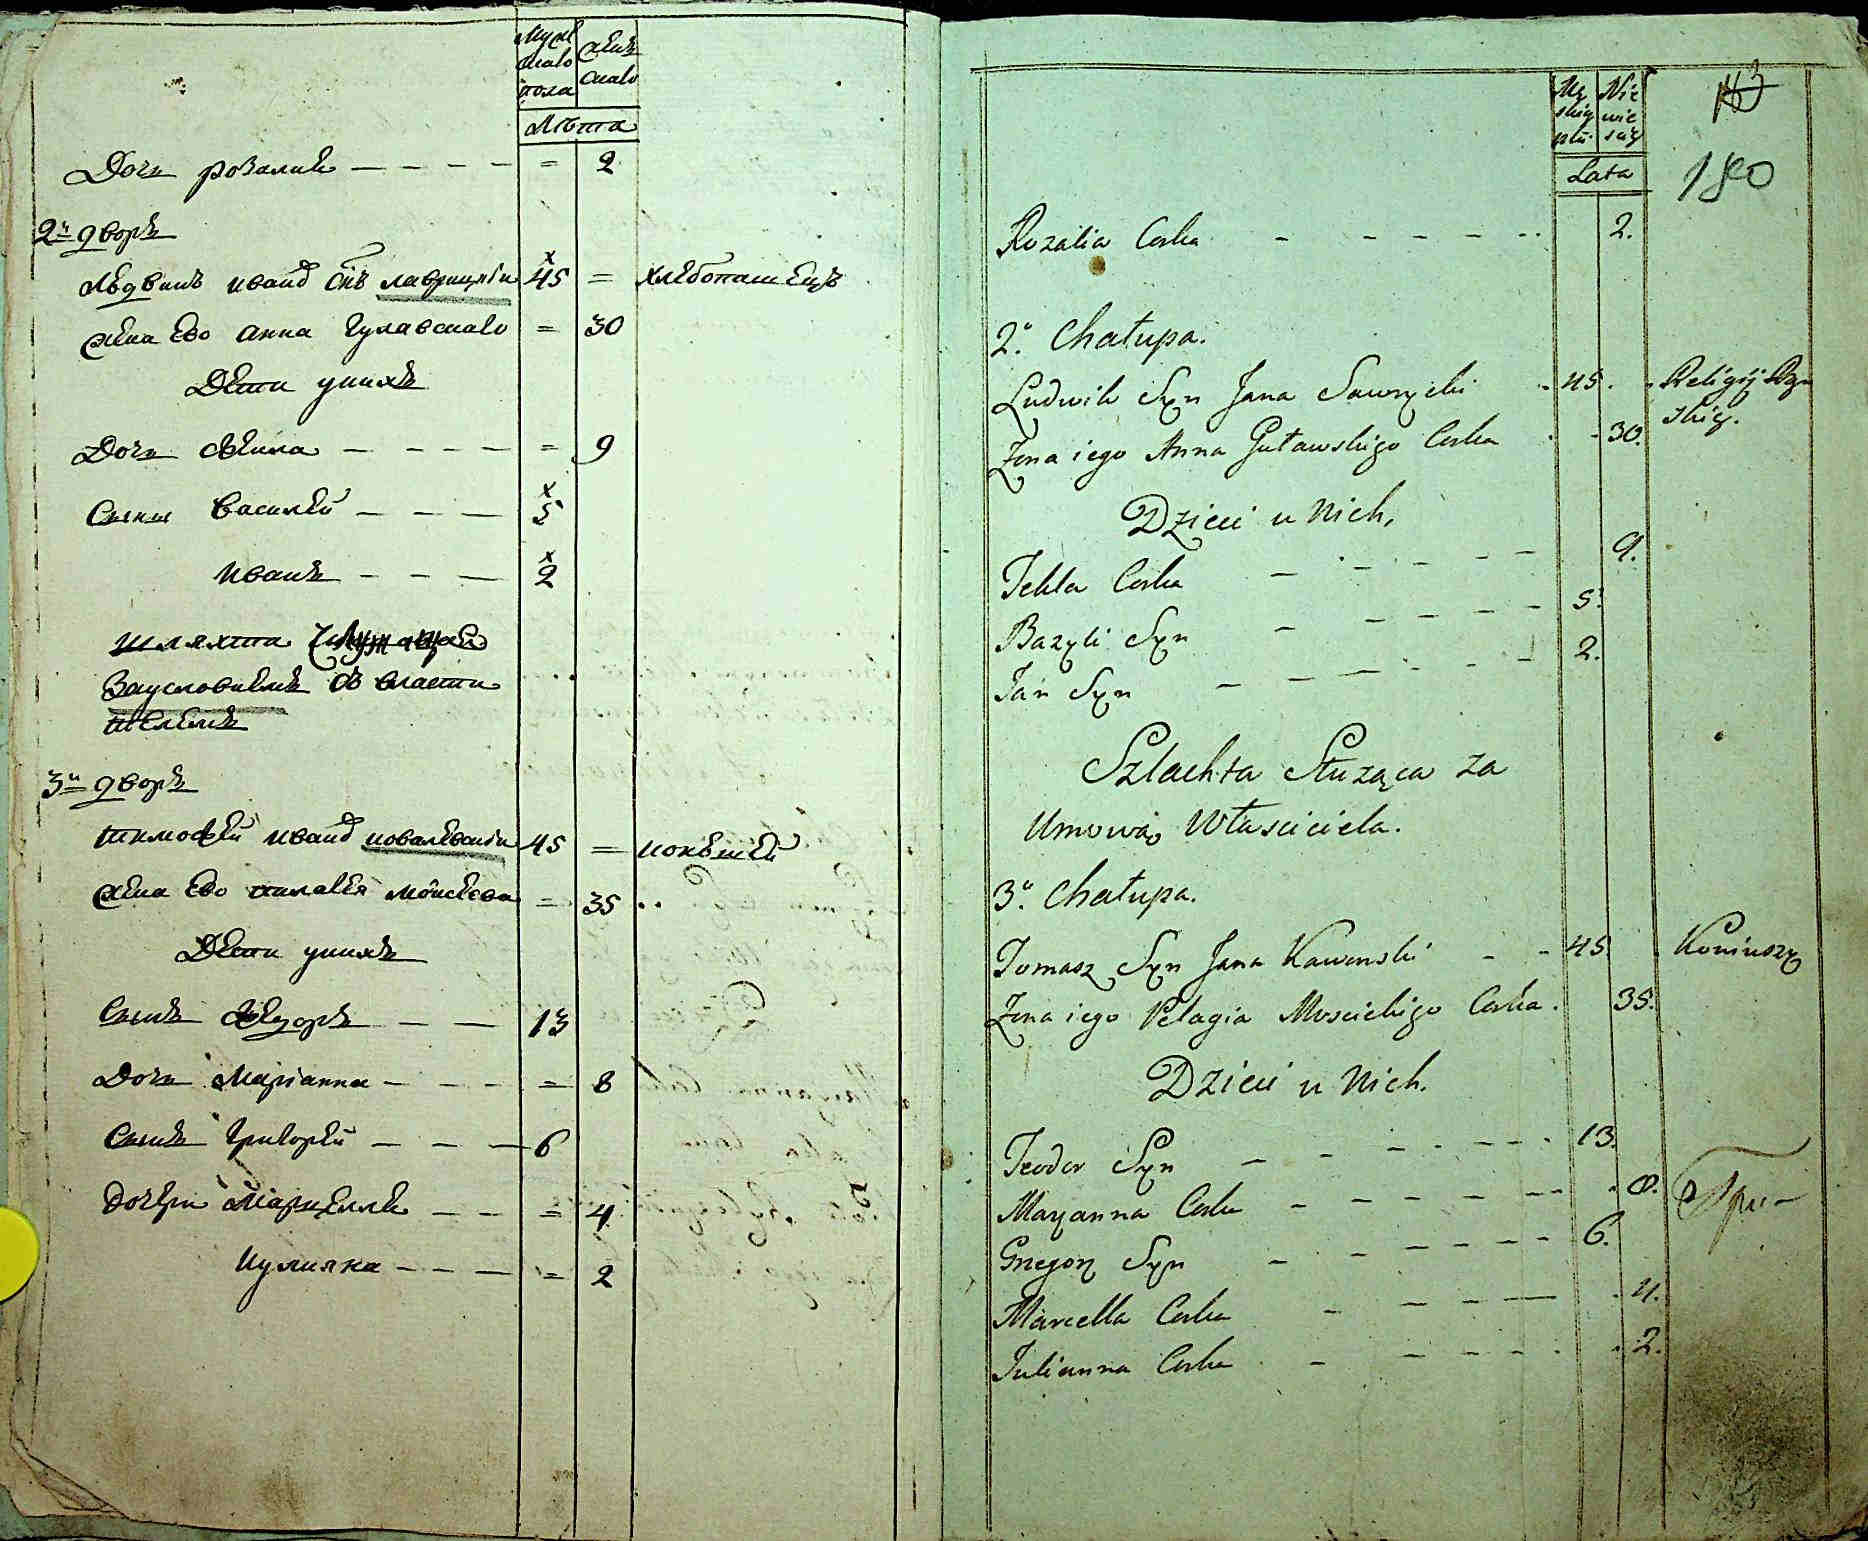 Мужскаго пола
женскаго
Лѣта
Дочь розалия — — — — = 2
2й дворъ
Людвикъ иванд Снъ лаврицкiи 45 = хлебопашецъ
жена Ево анна гулавскаго = 30
Дети унихъ
Дочь — — — — = 9
Сыны василеи — — — 5
иванъ — — — 2
шляхта
Заусловиемъ Съ власти
телемъ
3й дворъ
тимофеи иванд ковалевскiи 45 = конюшеи
жена Ево пилагея = 35
Дети унихъ
Сынъ Федоръ — — 13
Дочь Марiанна — — — = 8
Сынъ григореи — — — 6
дочери Марцелля — — = 4
Иулияна — — — = 2
Męskiey płci
Niewieściey
Lata
180
Rozalia Corka - - - - - 2.
2º. Chałupa.
Ludwik Syn Jana Sawrycki 45. Religij Rzymskiey.
Żona iego Anna Gutawskiego Corka 30.
Dzieci u Nich,
Tekla Corka - - - - - 9.
Bazyli Syn - - - - - 5.
Jan Syn - - - - - 2.
Szlachta Służąca za
Umową Własciciela.
3º. Chałupa.
Tomasz Syn Jana Kawenski - - 45 Koniuszy
Żona iego Pelagia Moscickiego Corka. 35.
Dzieci u Nich.
Teodor Syn - - - - - 13.
Maryanna Corka - - - - - 8.
Gregorz Syn - - - - - 6.
Marcella Corka - - - - 4.
Julianna Corka - - - - - 2.